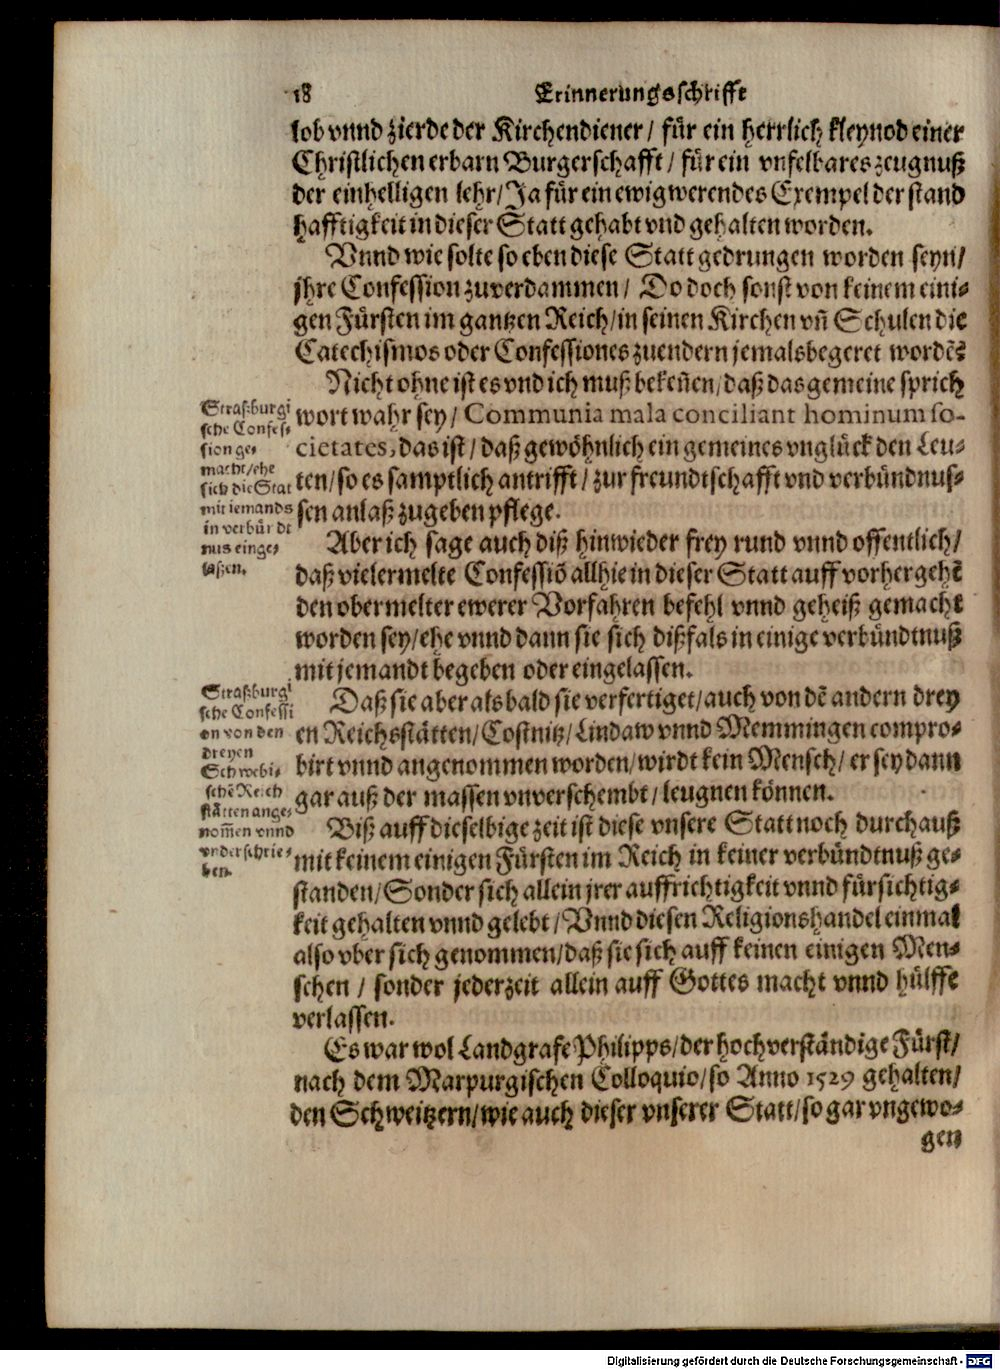 18 Erinnerungsschrifft
lob vnnd zierde der Kirchendiener / für ein herrlich kleynod einer
Christlichen erbarn Burgerschafft / für ein vnfelbares zeugnuß
der einhelligen lehr / Ja für ein ewigwerendes Exempel der stand
hafftigkeit in dieser Statt gehabt vnd gehalten worden.
Vnnd wie solte so eben diese Statt gedrungen worden seyn /
jhre Confession zuverdammen / Do doch sonst von keinem eini-
gen Fürsten im gantzen Reich / in seinen Kirchen vn̄ Schulen die
Catechismos oder Confessiones zuendern jemals begeret wordē?
Nicht ohne ist es vnd ich muß beken̄en / daß das gemeine sprich
wort wahr sey / Communia mala conciliant hominum so-
cietates, das ist / daß gewöhnlich ein gemeines vnglück den Leu-
ten / so es samptlich antrifft / zur freundtschafft vnd verbündnus-
sen anlaß zugeben pflege.
Straßburgi
sche Confes-
sion ge-
macht / ehe
sich die Stat
mit jemands
in verbündt
nus einge-
laßen.
Aber ich sage auch diß hinwieder frey rund vnnd offentlich /
daß vielermelte Confessiō allhie in dieser Statt auff vorhergehē
den obermelter ewerer Vorfahren befehl vnnd geheiß gemacht
worden sey / ehe vnnd dann sie sich dißfals in einige verbündtnuß
mit jemandt begeben oder eingelassen.
Straßburgi
sche Confessi
on von den
dreyen
Schwebi-
schē Reich
stätten ange-
nom̄en vnnd
vnderschrie-
ben.
Daß sie aber als bald sie verfertiget / auch von dē andern drey
en Reichsstätten / Costnitz / Lindaw vnnd Memmingen compro-
birt vnnd angenommen worden / wirdt kein Mensch / er sey dann
gar auß der massen vnverschembt / leugnen können.
Biß auff dieselbige zeit ist diese vnsere Statt noch durchauß
mit keinem einigen Fürsten im Reich in keiner verbündtnuß ge-
standen / Sonder sich allein jrer auffrichtigkeit vnnd fürsichtig-
keit gehalten vnnd gelebt / Vnnd diesen Religionshandel einmal
also vber sich genommen / daß sie sich auff keinen einigen Men-
schen / sonder jederzeit allein auff Gottes macht vnnd hülffe
verlassen.
Es war wol Landgrafe Philipps / der hochverständige Fürst /
nach dem Marpurgischen Colloquio / so Anno 1529 gehalten /
den Schweitzern / wie auch dieser vnserer Statt / so gar vngewo-
gen
Digitalisierung gefördert durch die Deutsche Forschungsgemeinschaft - DFG